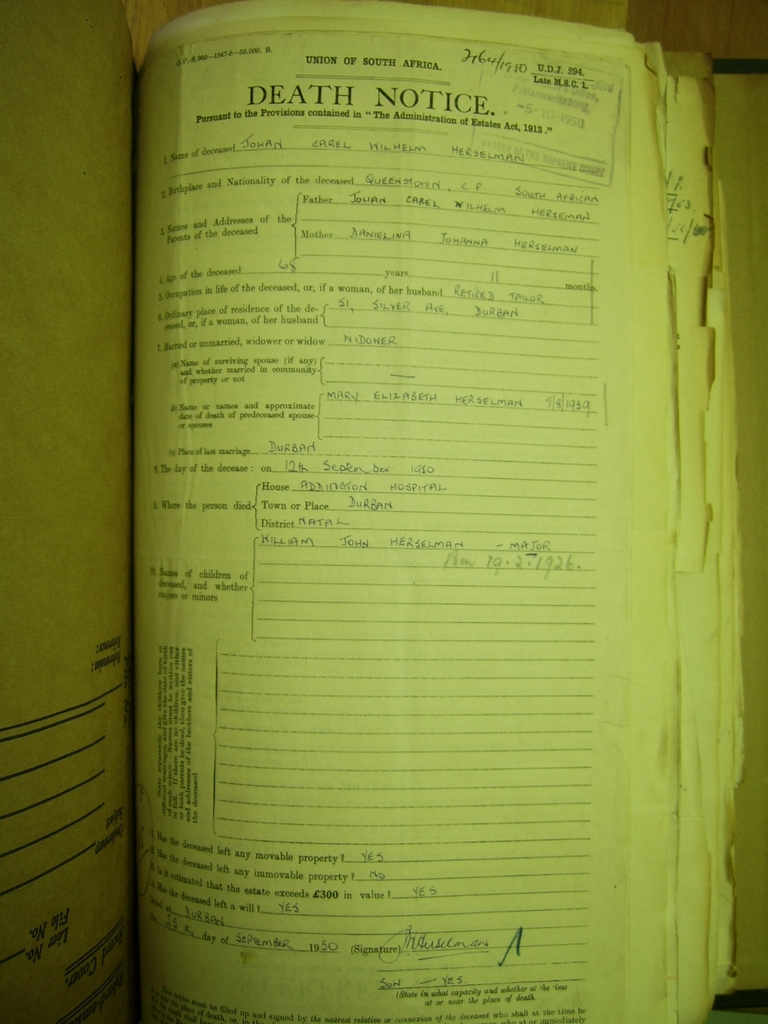 UNION OF SOUTH AFRICA.
2164/1950 U.D.J. 294.
Late M.S.C. 1.
DEATH NOTICE.
Pursuant to the Provisions contained in "The Administration of Estates Act, 1913."
-5-10-1950
1. Name of deceased JOHAN CAREL WILHELM HERSELMAN
2. Birthplace and Nationality of the deceased QUEENSTOWN, C.P. SOUTH AFRICAN
3. Names and Addresses of the Parents of the deceased
Father JOHAN CAREL WILHELM HERSEMAN
Mother DANIELINA JOHANNA HERSELMAN
4. Age of the deceased 68 years 11 months
5. Occupation in life of the deceased, or, if a woman, of her husband RETIRED TAILOR
6. Ordinary place of residence of the de- 51, SILVER AVE, DURBAN
ceased, or, if a woman, of her husband
7. Married or unmarried, widower or widow WIDOWER
(a) Name of surviving spouse (if any)
and whether married in community
of property or not —
(b) Name or names and approximate MARY ELIZABETH HERSELMAN 7/8/1939
date of death of predeceased spouse
or spouses
(c) Place of last marriage DURBAN
8. The day of the decease: on 12th September 1950
9. Where the person died
House ADDINGTON HOSPITAL
Town or Place DURBAN
District NATAL
WILLIAM JOHN HERSELMAN - MAJOR
Born 19.2.1926.
10. Names of children of
deceased, and whether
majors or minors
and addresses of the brothers and sisters of
the deceased
Has the deceased left any movable property? YES
Has the deceased left any immovable property? NO
Is it estimated that the estate exceeds £300 in value? YES
Has the deceased left a will? YES
Dated at DURBAN
day of SEPTEMBER 1950 (Signature) Herselman
SON - YES
(State in what capacity and whether at the time
at or near the place of death.
must be filled up and signed by the nearest relative or connexion of the deceased who shall at the time be